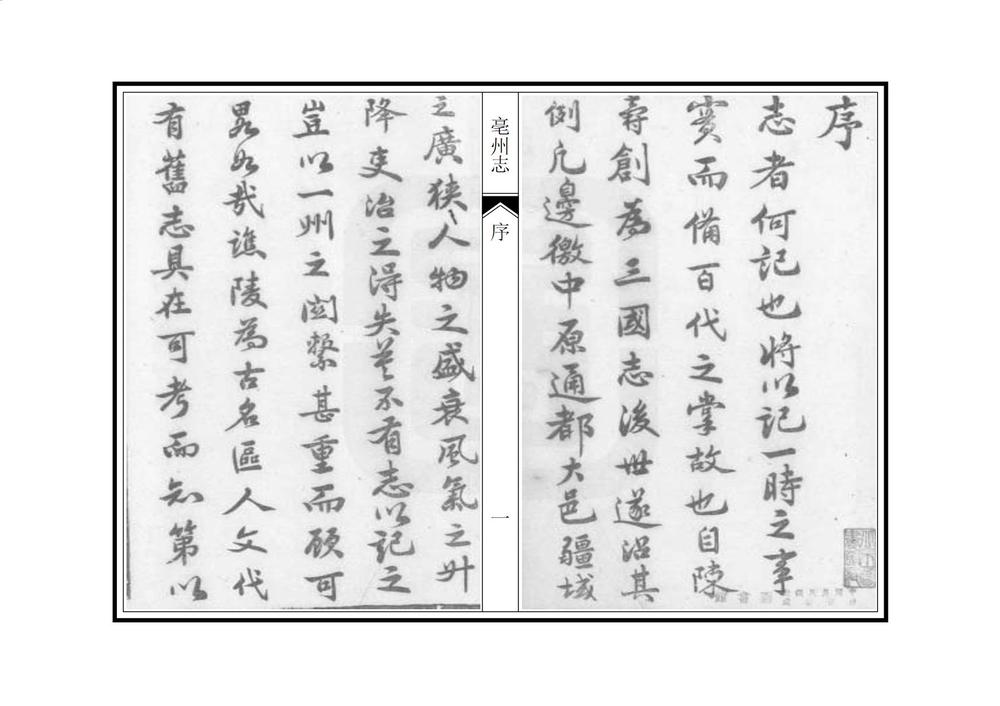 序
志者何記也將以記一時之事
實而備百代之掌故也自陳
壽創為三國志後世遂沿其
例凡邊徼中原通都大邑疆域
亳州志
序
一
之廣狹人物之盛衰風氣之升
降吏治之得失莫不有志以記之
豈以一州之関繫甚重而顧可
畧如哉譙陵為古名區人文代
有舊志具在可考而知第以